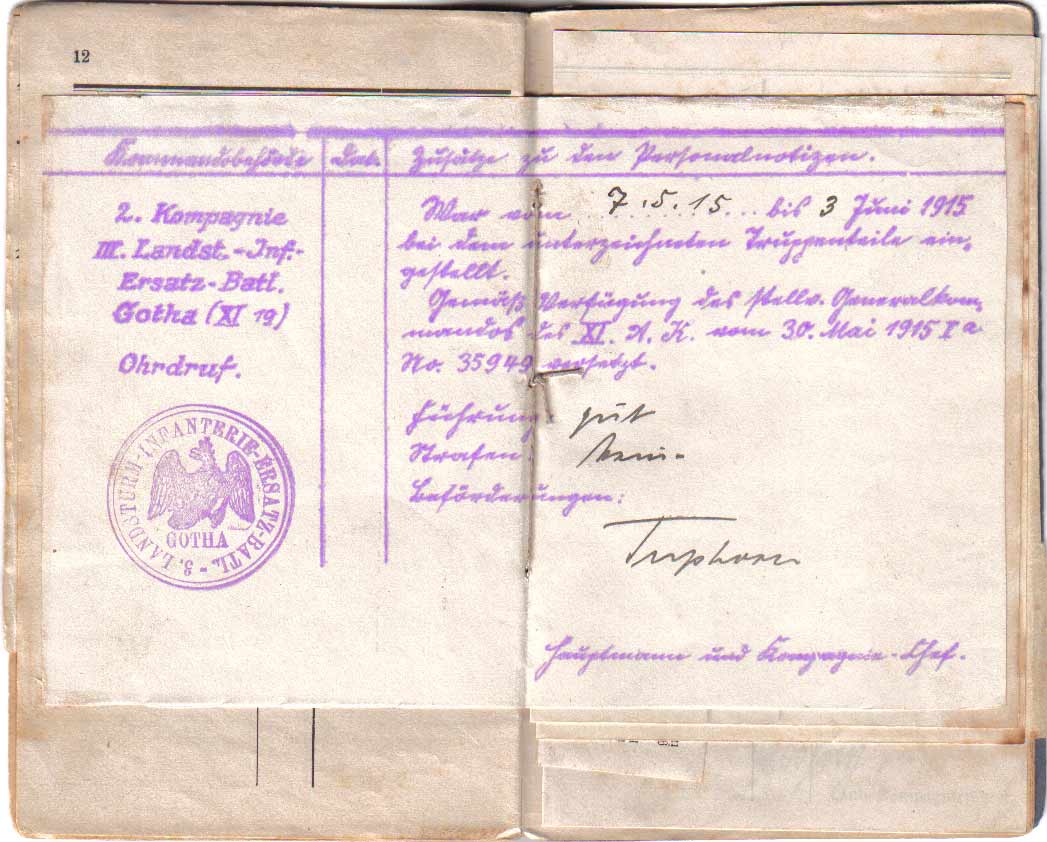 12
Kommandobehörde Dat. Zusätze zu den Personalnotizen.
2. Kompagnie
III. Landst.-Inf.-
Ersatz-Batl.
Gotha (XI 19)
Ohrdruf.
3. LANDSTURM-INFANTERIE-ERSATZ-BATL.
GOTHA
War vom 7.5.15 bis 3 Juni 1915
bei dem unterzeichneten Truppenteile ein-
gestellt.
Gemäß Verfügung des stellv. Generalkom-
mandos des XI. A. K. vom 30. Mai 1915 Ia
No. 35949 versetzt.
Führung: gut
Strafen:
Beförderungen:
Hauptmann und Kompagnie-Chef.